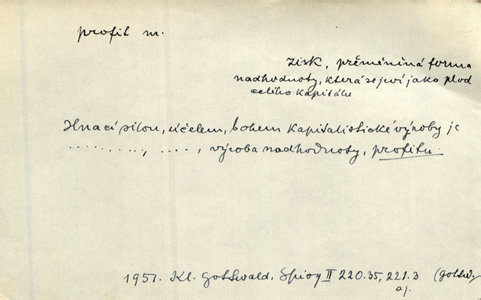 profit m.
zisk, přeměněná forma
nadhodnoty, která se jeví jako plod
celého kapitálu
Hnací silou, účelem, bohem kapitalistické výroby je
........., ...., výroba nadhodnoty, profitu.
1951. Kl. Gottwald, Spisy II 220.35, 221.3 (gottw.
aj.